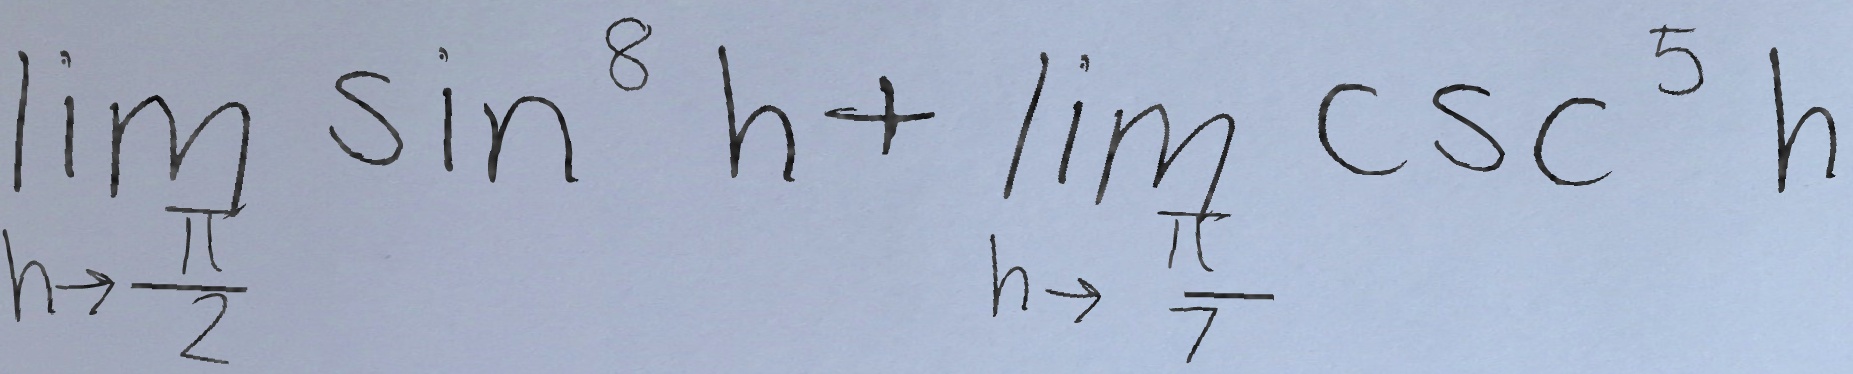 \lim_{h \to \frac{\pi}{2}} \sin^{8} h + \lim_{h \to \frac{\pi}{7}} \csc^{5} h